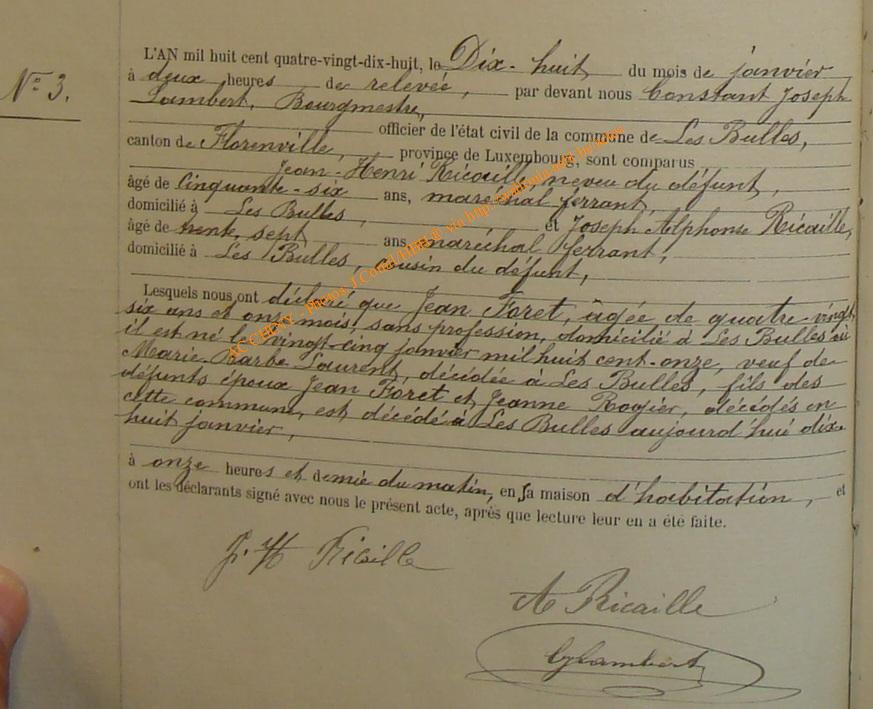 N° 3.
L'AN mil huit cent quatre-vingt-dix-huit, le Dix-huit du mois de janvier
à deux heures de relevée, par devant nous Constant Joseph
Lambert, Bourgmestre,
officier de l'état civil de la commune de Les Bulles,
canton de Florenville, province de Luxembourg, sont comparus
Jean-Henri Ricaille, neveu du défunt,
âgé de Cinquante-six ans, maréchal ferrant,
domicilié à Les Bulles, et Joseph Alphonse Ricaille,
âgé de trente, sept ans, maréchal ferrant,
domicilié à Les Bulles, cousin du défunt,
Lesquels nous ont déclaré que Jean Foret, âgée de quatre-vingt
six ans et onze mois, sans profession, domicilié à Les Bulles où
il est né le vingt-cinq janvier mil huit cent-onze, veuf de
Marie-Barbe Laurent, décédée à Les Bulles, fils des
défunts époux Jean Foret et Jeanne Rogier, décédés en
cette commune, est décédé à Les Bulles aujourd'hui dix-
huit janvier,
à onze heures et demie du matin, en sa maison d'habitation, et
ont les déclarants signé avec nous le présent acte, après que lecture leur en a été faite.
J. H Ricaille
A Ricaille
CJLambert
ACCHENY - Photos J.Collin/HIBER via http://